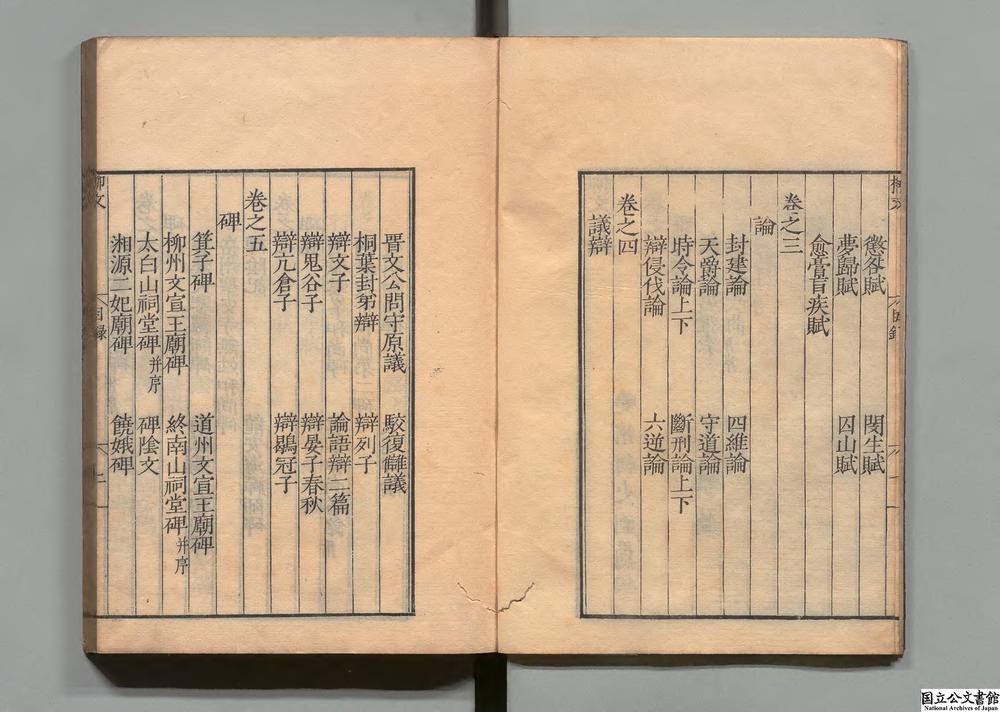 懲咎賦 閔生賦
夢歸賦 囚山賦
愈膏肓疾賦
卷之三
論
封建論 四維論
天爵論 守道論
時令論上下 斷刑論上下
辯侵伐論 六逆論
卷之四
議辯
晋文公問守原議 駁復讎議
桐葉封弟辯 辯列子
辯文子 論語辯二篇
辯鬼谷子 辯晏子春秋
辯亢倉子 辯鶡冠子
卷之五
碑
箕子碑 道州文宣王廟碑
柳州文宣王廟碑 終南山祠堂碑并序
太白山祠堂碑并序 碑陰文
湘源二妃廟碑 饒娥碑
柳文 目録
国立公文書館
National Archives of Japan